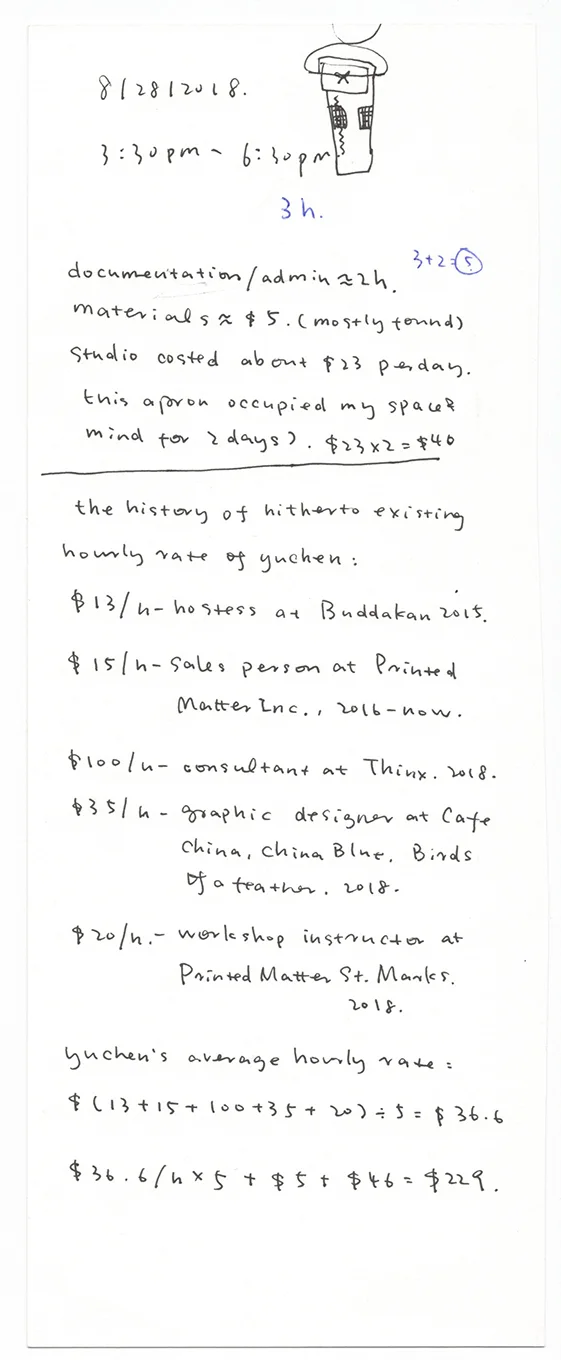 8/28/2018.
3:30pm - 6:30pm
3h.
3+2=5
documentation/admin ≈ 2h.
materials ≈ $5. (mostly found)
studio costed about $23 perday.
this apron occupied my space &
mind for 2 days). $23 x 2 = $46
the history of hitherto existing
hourly rate of yuchen:
$13/h - hostess at Buddakan 2015.
$15/h - sales person at Printed
Matter Inc., 2016 - now.
$100/h - consultant at Thinx. 2018.
$35/h - graphic designer at Cafe
China, China Blue, Birds
of a feather. 2018.
$20/h. - workshop instructor at
Printed Matter St. Marks.
2018.
yuchen's average hourly rate:
$(13+15+100+35+20) ÷ 5 = $36.6
$36.6/h x 5 + $5 + $46 = $229.